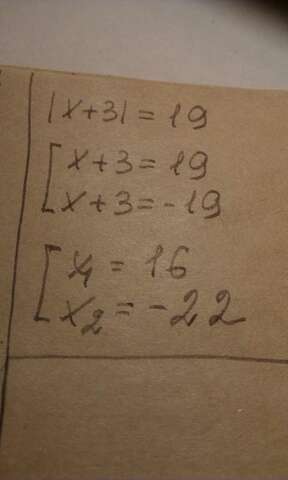 |x+3| = 19
[x+3 = 19
[x+3 = -19
[x₁ = 16
[x₂ = -22